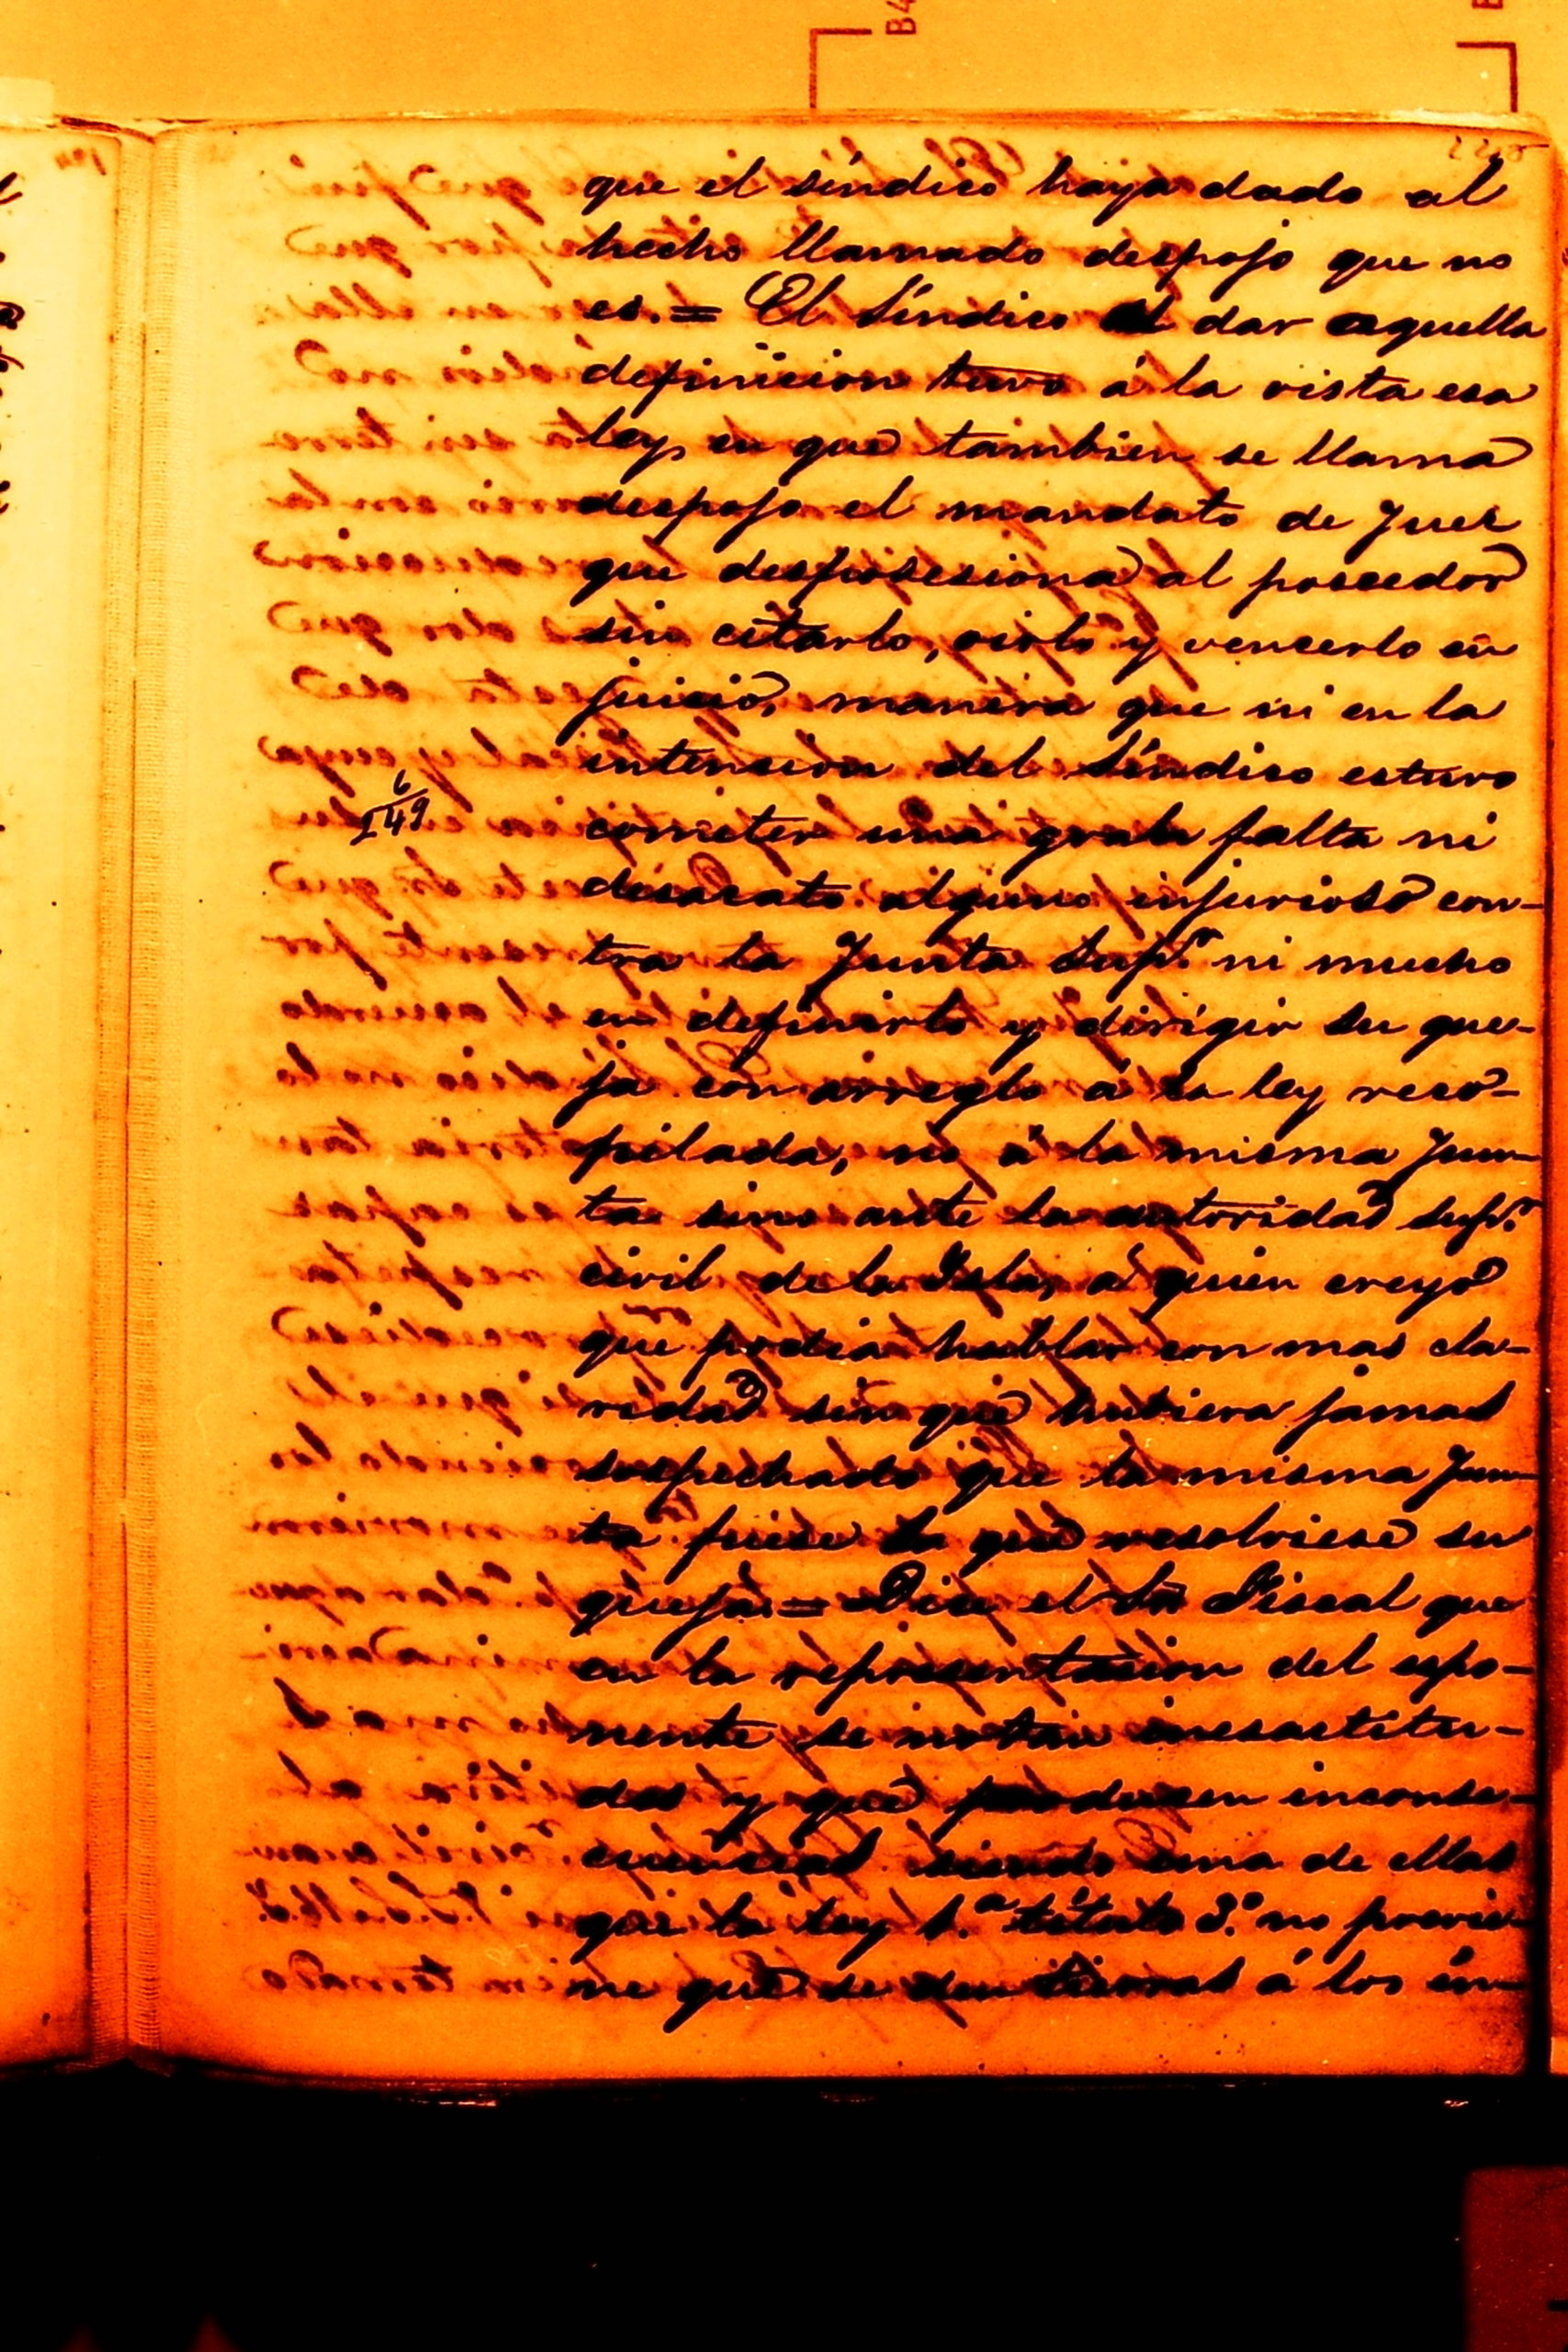 que el síndico haya dado al
hecho llamado despojo que no
es. = El Síndico al dar aquella
definicion tuvo á la vista esa
ley, en que tambien se llama
despojo el mandato de Juez
que desposesiona al poseedor
sin citarlo, oirlo y vencerlo en
juicio, manera que ni en la
intencion del Síndico estuvo
6
149
cometer una grave falta ni
desacato alguno injurioso con-
tra la Junta Supr. ni mucho
en definirlo y dirigir su que-
ja con arreglo á la ley reco-
pilada, no á la misma Jun-
ta sino ante la autoridad Supr.
civil de la Isla, á quien creyó
que podia hablar con mas cla-
ridad sin que hubiera jamas
sospechado que la misma Jun-
ta fuese la que resolviese su
queja. = Dice el Sr. Fiscal que
en la representacion del espo-
nente se notan inesactitu-
des y que producen inconse-
cuencias siendo una de ellas
que la ley 1.ª título 3.º no previe-
ne que se den tierras á los in-